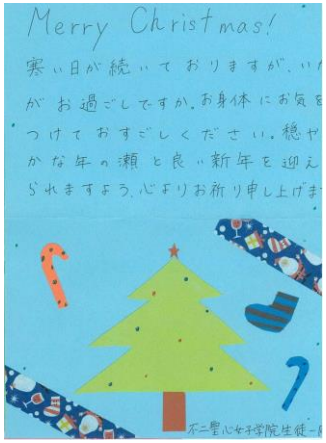 Merry Christmas!
寒い日が続いておりますが、い
がお過ごしですか。お身体にお気を
つけておすごしください。穏や
かな年の瀬と良い新年を迎え
られますよう、心よりお祈り申し上げま
不二聖心女子学院生徒一